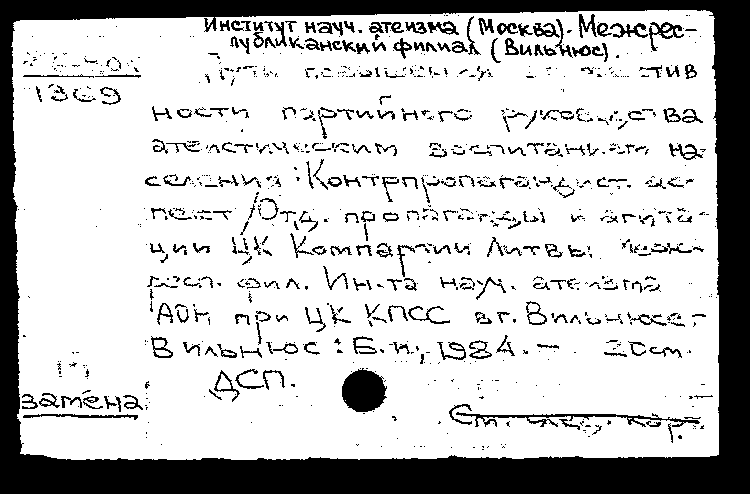 Институт науч. атеизма (Москва). Межрес-
публиканский филиал (Вильнюс).
Пути повышения эффектив
1369
ности партийного руководства
атеистическим воспитанием на-
селения : Контрпропагандист. ас-
пект / Отд. пропаганды и агита-
ции ЦК Компартии Литвы. Меж-
респ. фил. Ин-та науч. атеизма
АОН при ЦК КПСС в г. Вильнюсе. -
Вильнюс : Б. и., 1984. - 20 см.
ДСП.
замена
См. след. кар.